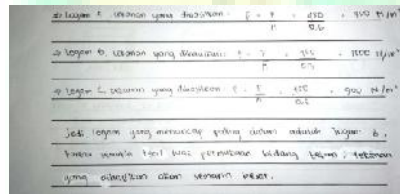 ⇒ logam A, tekanan yang dihasilkan: P = F / A = 450 / 0.5 = 900 N/m²
⇒ logam B, tekanan yang dihasilkan: P = F / A
⇒ logam C, tekanan yang dihasilkan: P = F / A = 450 / 0.5 = 900 N/m²
Jadi logam yang menancap paling dalam adalah logam B,
karena semakin kecil luas permukaan bidang tekan, tekanan
yang dihasilkan akan semakin besar.